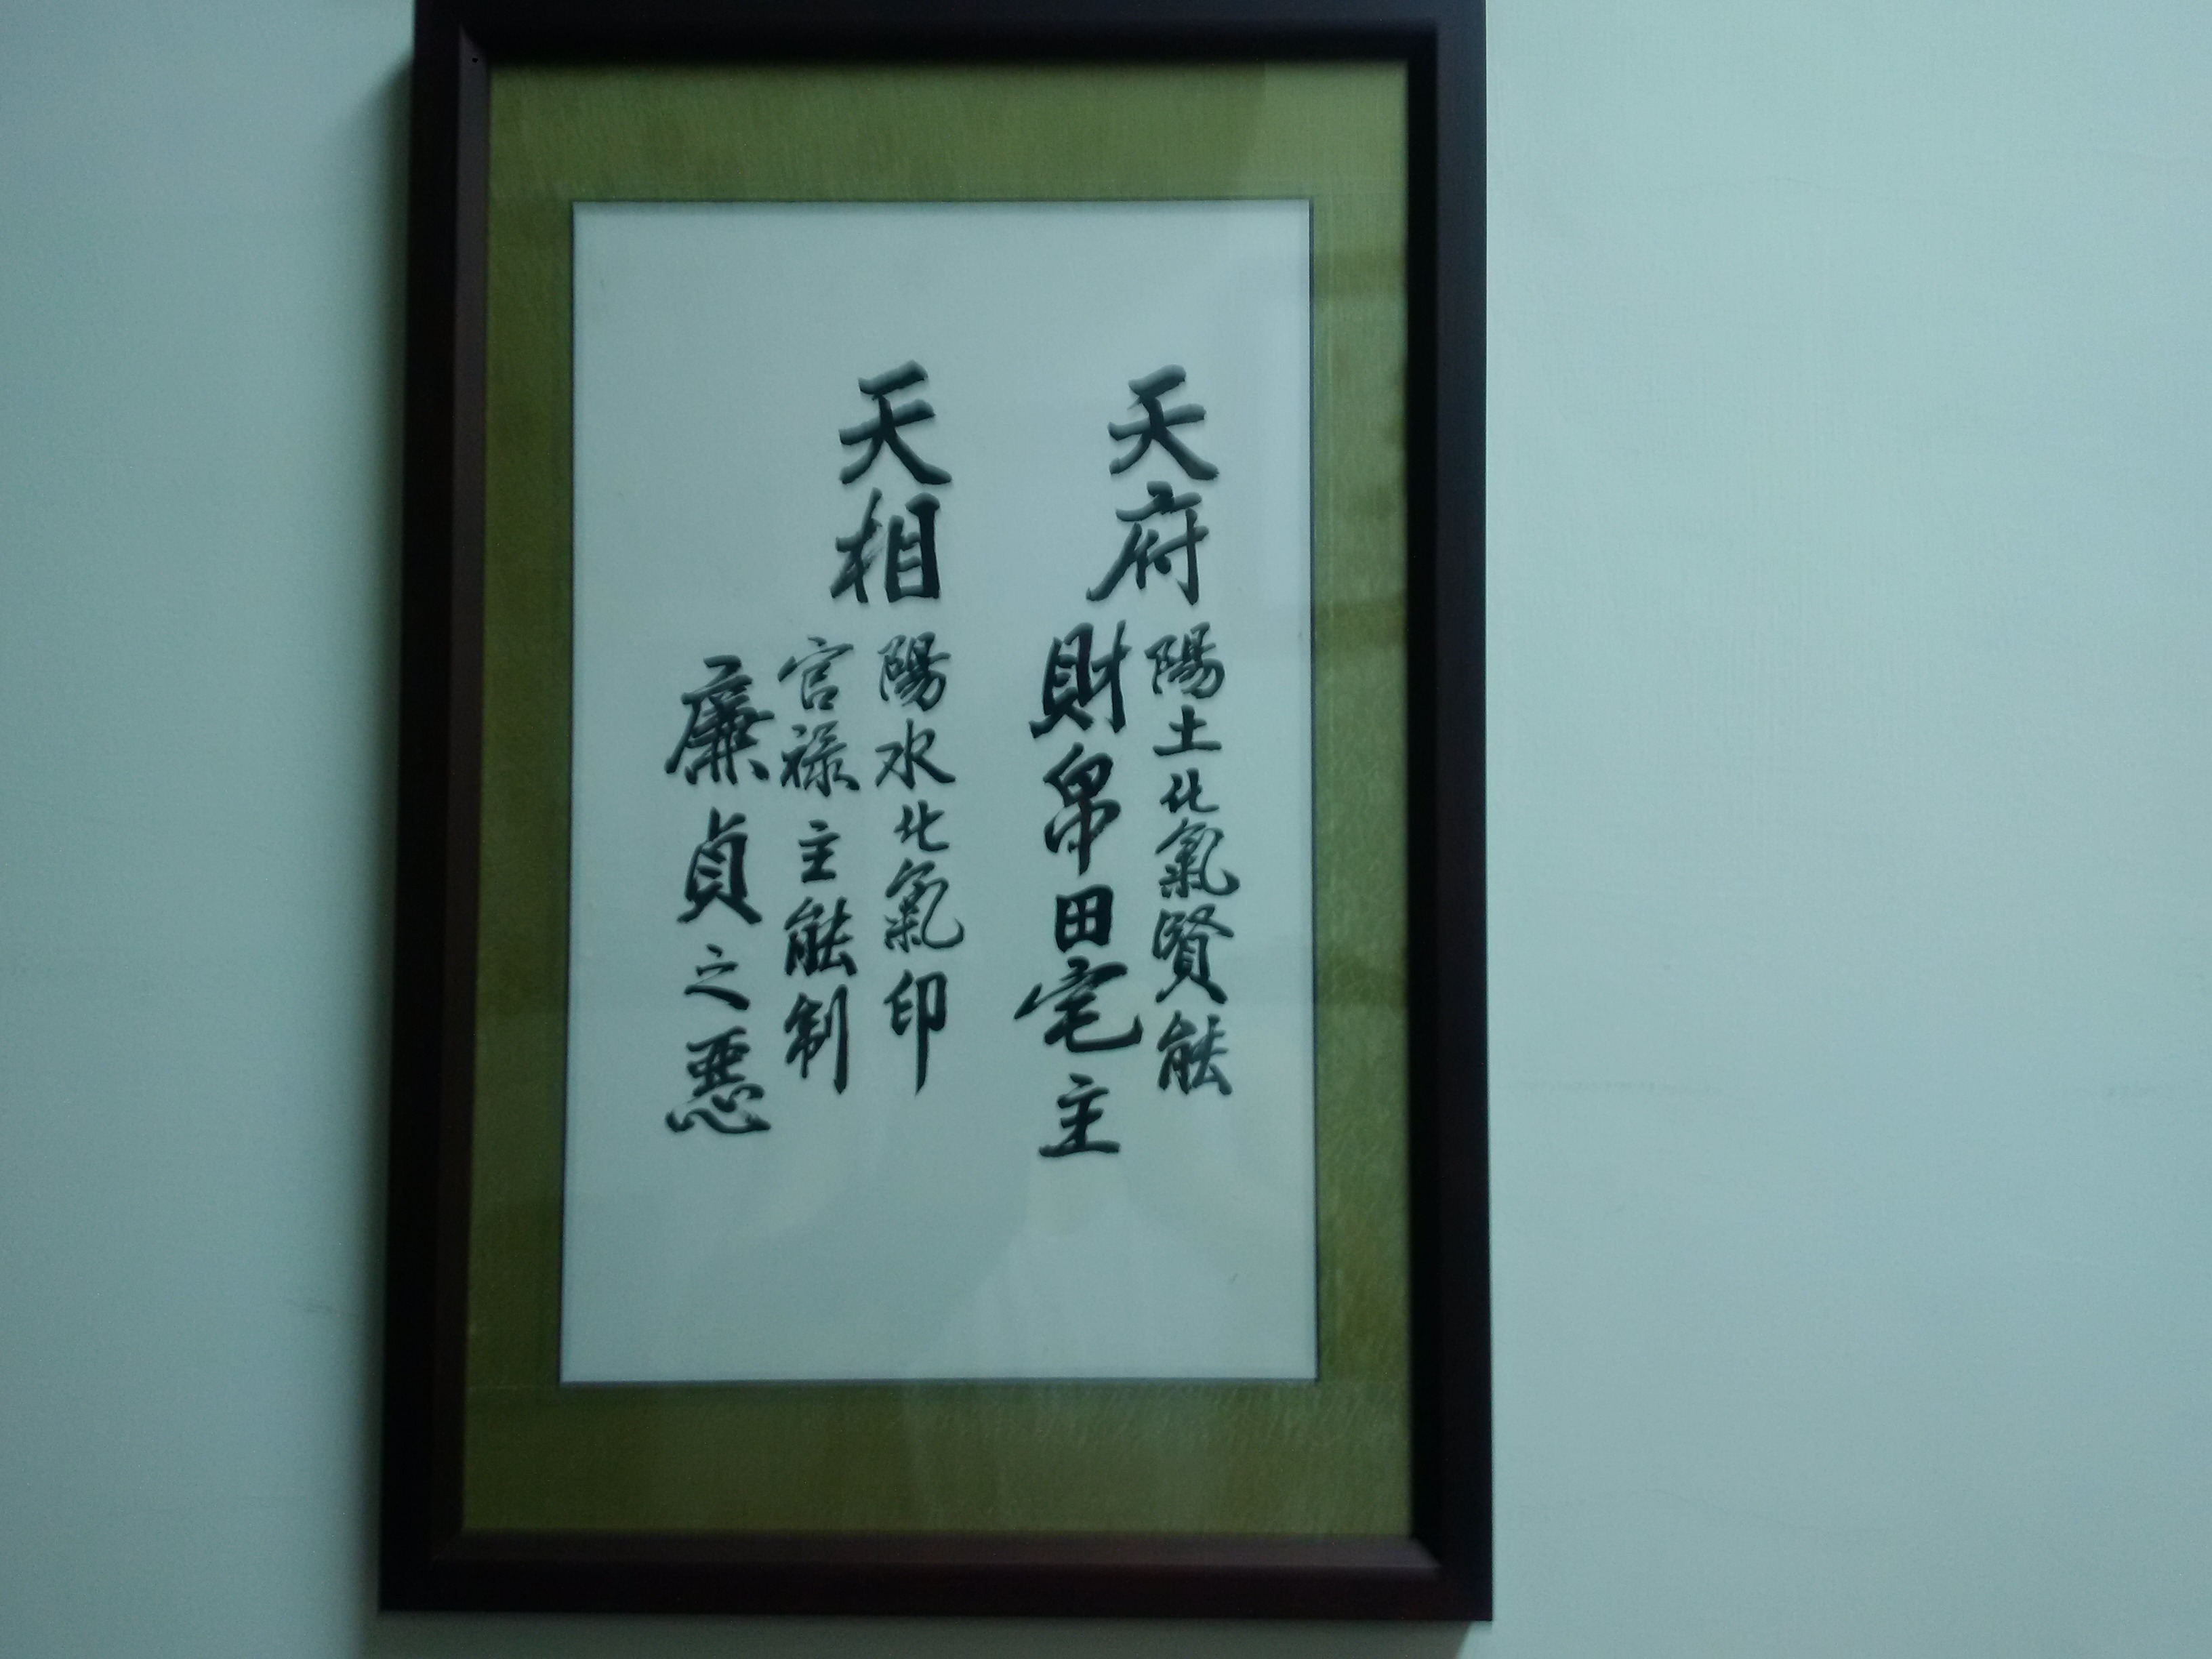 天府
陽土化氣賢能
財帛田宅主
天相
陽水化氣印
官祿主能制
廉貞之惡